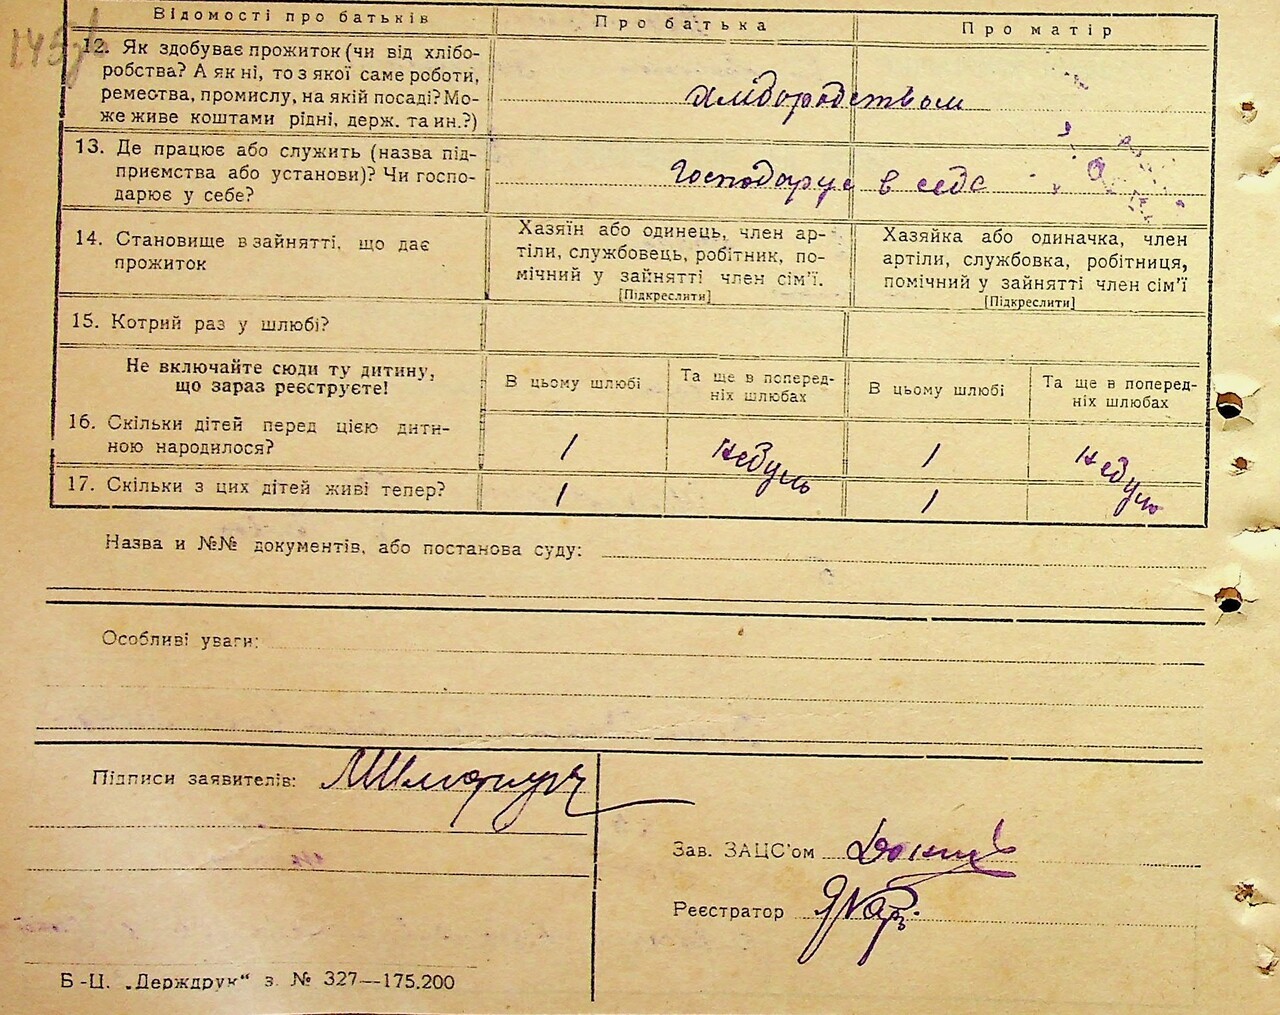 145
Відомості про батьків
Про батька
Про матір
12. Як здобуває прожиток (чи від хлібо-
робства? А як ні, то з якої саме роботи,
ремества, промислу, на якій посаді? Мо-
же живе коштами рідні, держ. та ин.?)
хліборобством
13. Де працює або служить (назва під-
приємства або установи)? Чи госпо-
дарює у себе?
Господарує в себе
14. Становище в зайнятті, що дає
прожиток
Хазяїн або одинець, член ар-
тіли, службовець, робітник, по-
мічний у зайнятті член сім'ї.
[Підкреслити]
Хазяйка або одиначка, член
артіли, службовка, робітниця,
помічний у зайнятті член сім'ї
[Підкреслити]
15. Котрий раз у шлюбі?
Не включайте сюди ту дитину,
що зараз реєструєте!
В цьому шлюбі
Та ще в поперед-
ніх шлюбах
В цьому шлюбі
Та ще в поперед-
ніх шлюбах
16. Скільки дітей перед цією дити-
ною народилося?
1
небуль
1
небуль
17. Скільки з цих дітей живі тепер?
1
1
Назва и №№ документів, або постанова суду:
Особливі уваги:
Підписи заявителів:
Зав. ЗАЦС'ом
Реєстратор
Б-Ц. „Держдрук“ з. № 327—175.200